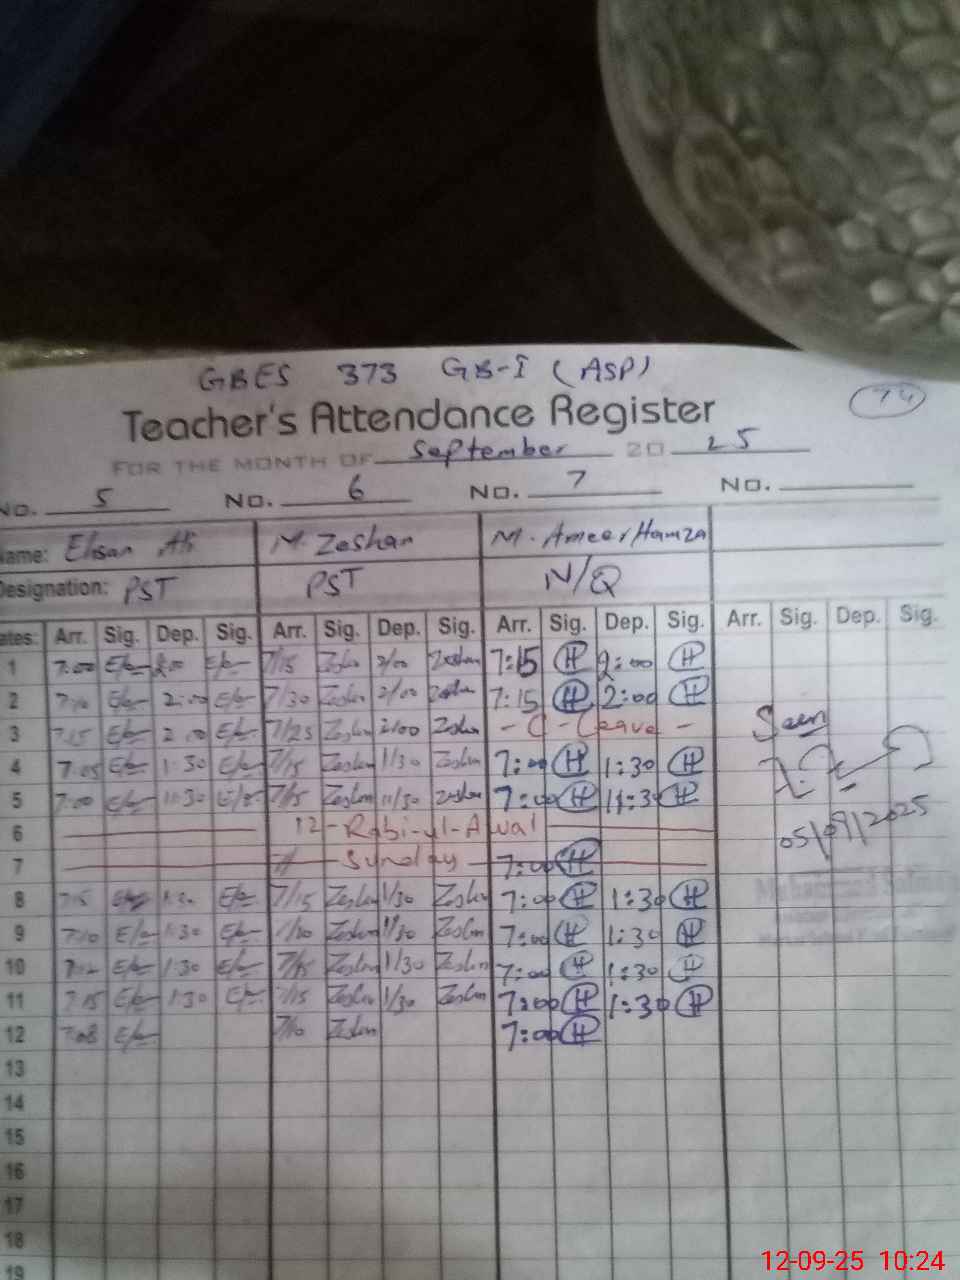 GBES 373 GB-I (ASP)
Teacher's Attendance Register
74
FOR THE MONTH OF September 20 25
No. 5 No. 6 No. 7 No.
Name: Ehsan Ali M. Zeshan M. Ameer Hamza
Designation: PST PST N/Q
Dates: Arr. Sig. Dep. Sig. Arr. Sig. Dep. Sig. Arr. Sig. Dep. Sig. Arr. Sig. Dep. Sig.
1 7:00 2:00 7/15 Zeshan 2/00 Zeshan 7:15 H 2:00 H
2 7:10 2:00 7/30 Zeshan 2/00 Zeshan 7:15 H 2:00 H
3 7:15 2:00 7/25 Zeshan 2/00 Zeshan - C - Leave - Seen
4 7:05 1:30 7/15 Zeshan 1/30 Zeshan 7:00 H 1:30 H
5 7:00 11:30 7/15 Zeshan 11/30 Zeshan 7:00 H 11:30 H
6 12-Rabi-ul-Awal 05/09/2025
7 Sunday 7:00 H
8 7:15 1:30 7/15 Zeshan 1/30 Zeshan 7:00 H 1:30 H
9 7:10 1:30 Zeshan 1/30 Zeshan 7:00 H 1:30 H
10 7:12 1:30 7/15 Zeshan 1/30 Zeshan 7:00 H 1:30 H
11 7:15 1:30 7/15 Zeshan 1/30 Zeshan 7:00 H 1:30 H
12 7:08 7/10 Zeshan 7:00 H
13
14
15
16
17
18
19
12-09-25 10:24